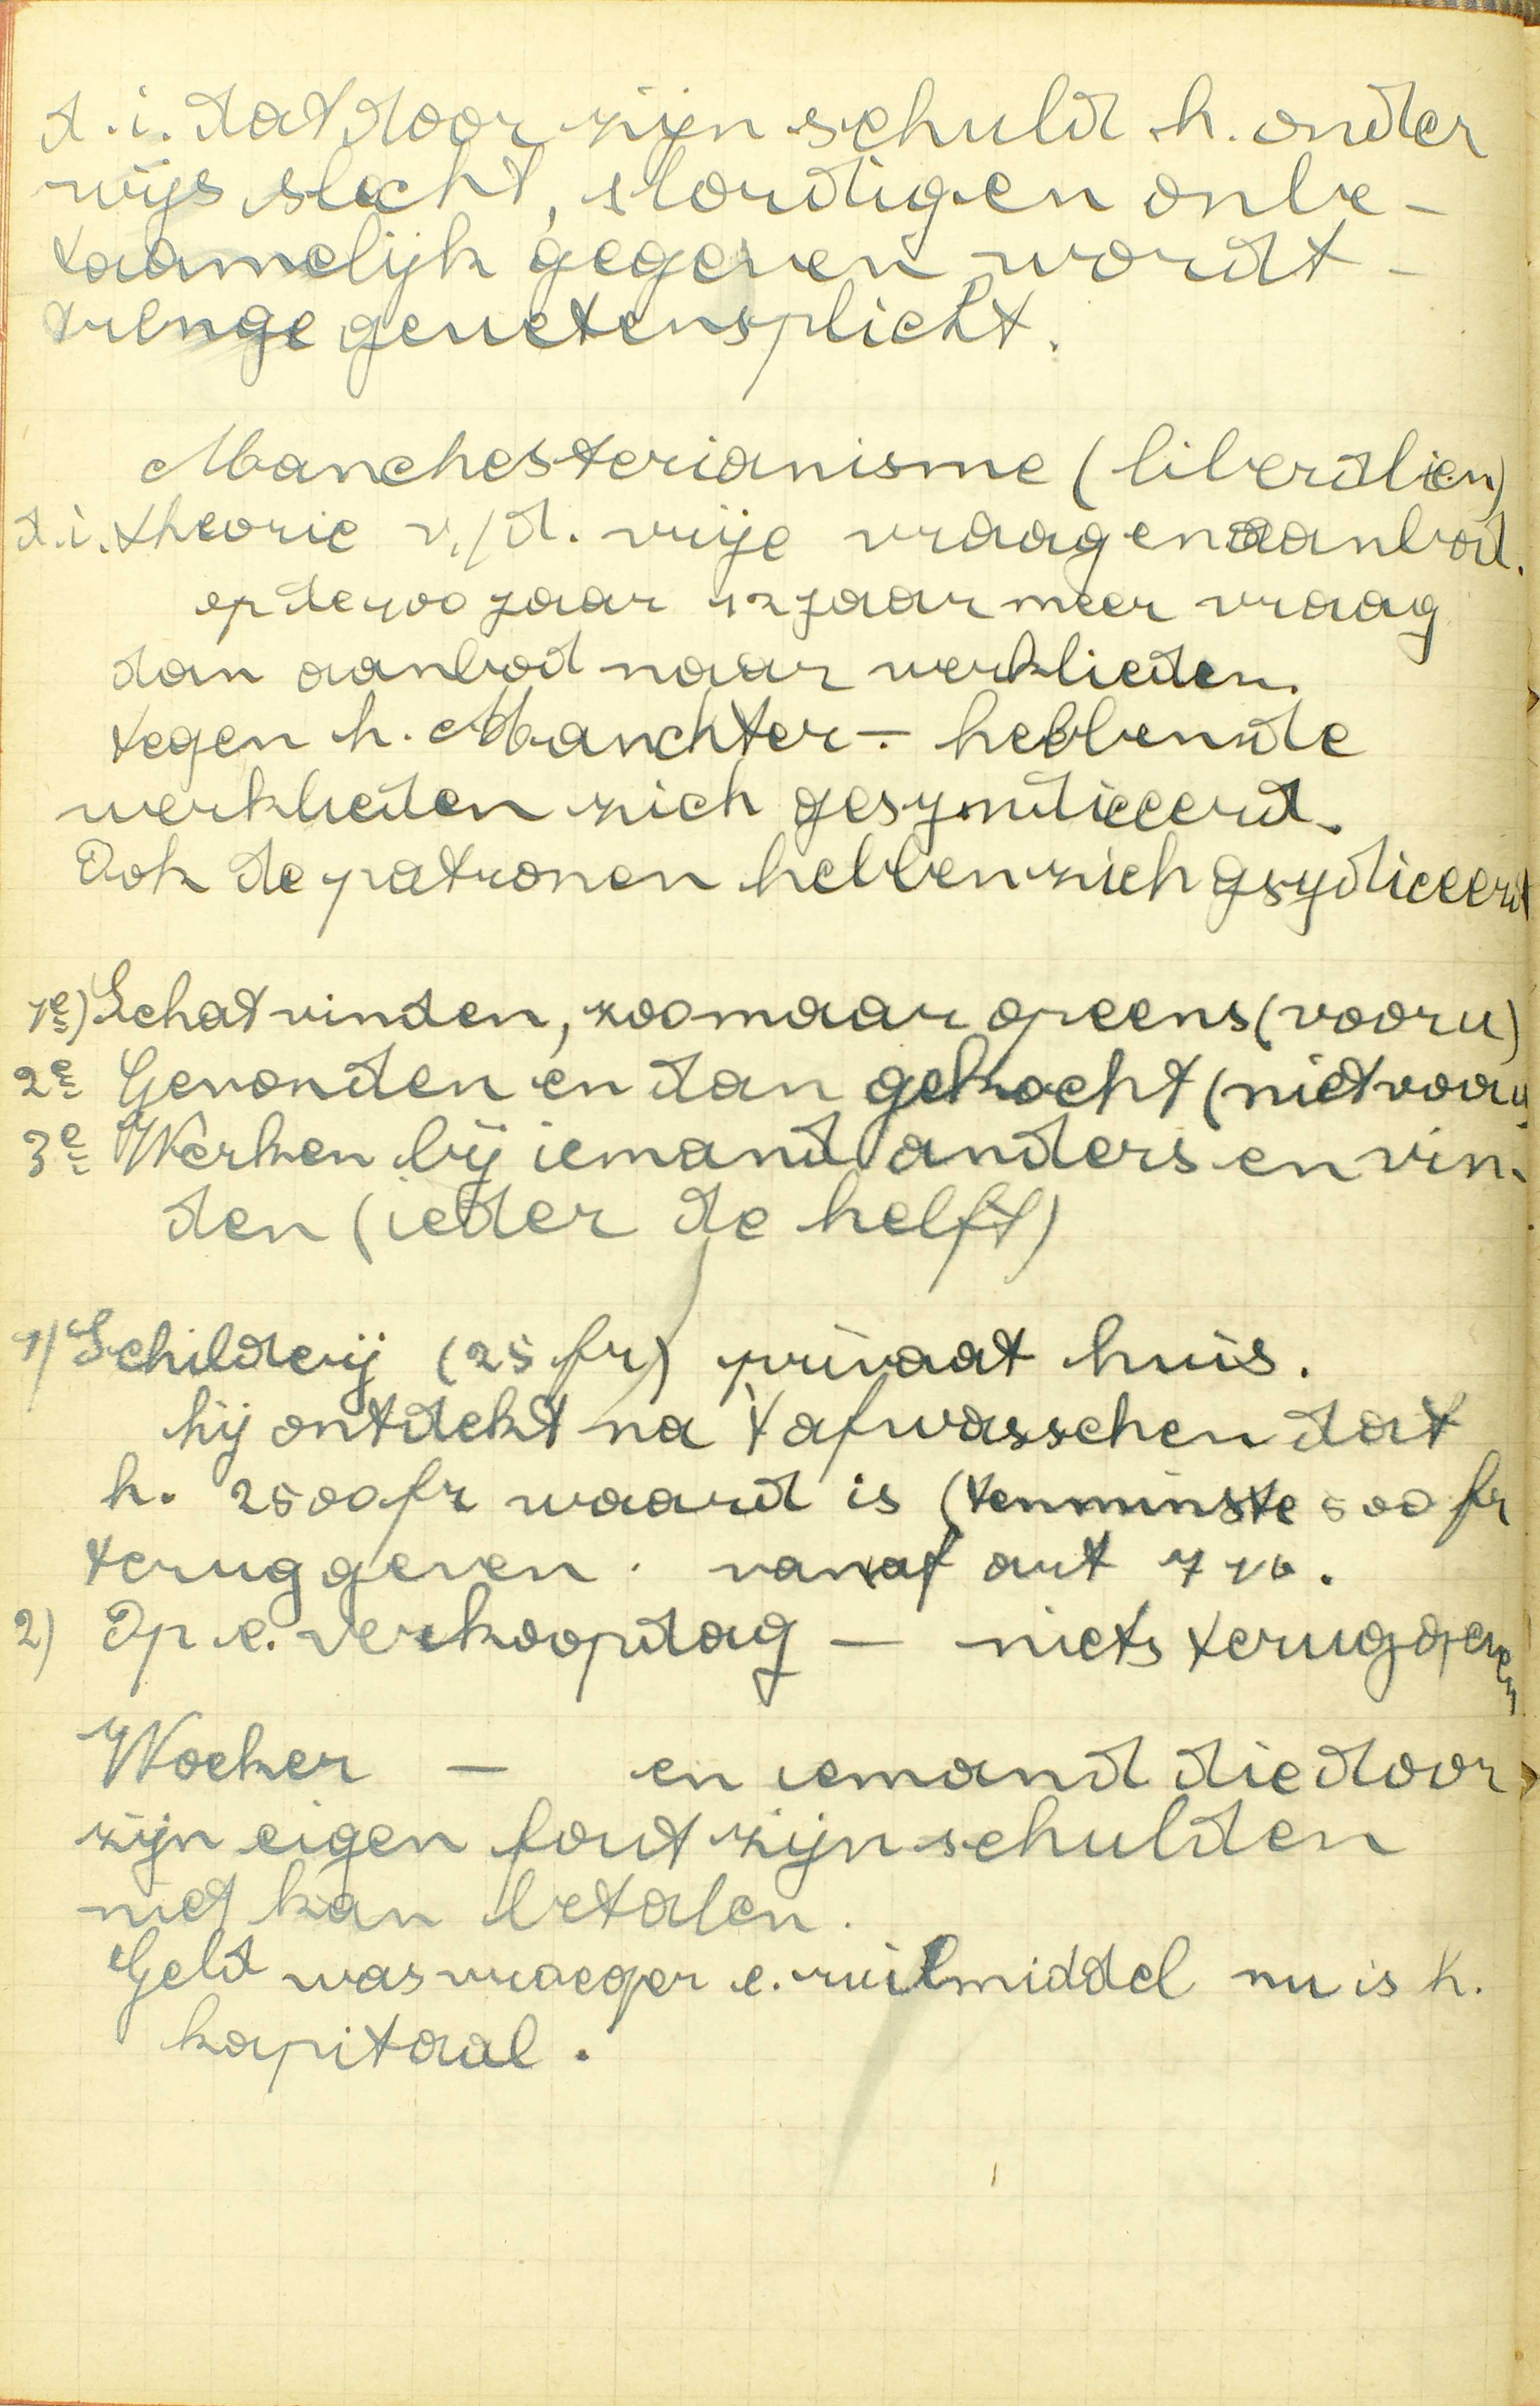 d.i. dat door zijn schuld h. onder
wijs slecht, slordig en onbe-
taamelijk gegeven wordt -
trenge gewetensplicht.
Manchesterianisme (liberalien)
d.i. theorie v./d. vrije vraag en aanbod.
op de 100 jaar 12 jaar meer vraag
dan aanbod naar werklieden.
tegen h. Manchter - hebben de
werklieden zich gesyndiceerd.
Ook de patronen hebben zich gsydiceerd
1e) Schat vinden, zoo maar opeens (voor u)
2e Gevonden en dan gekocht (niet voor u
3e Werken bij iemand anders en vin-
den (ieder de helft)
1/ Schilderij (25 fr) privaat huis.
hij ontdekt na 't afwasschen dat
h. 2500 fr waard is (tenminste 500 fr
teruggeven. vanaf art 710.
2) Op e. verkoopdag — niets teruggeven
Woeker — en iemand die door
zijn eigen fout zijn schulden
niet kan betalen.
Geld was vroeger e. ruilmiddel nu is h.
kapitaal.